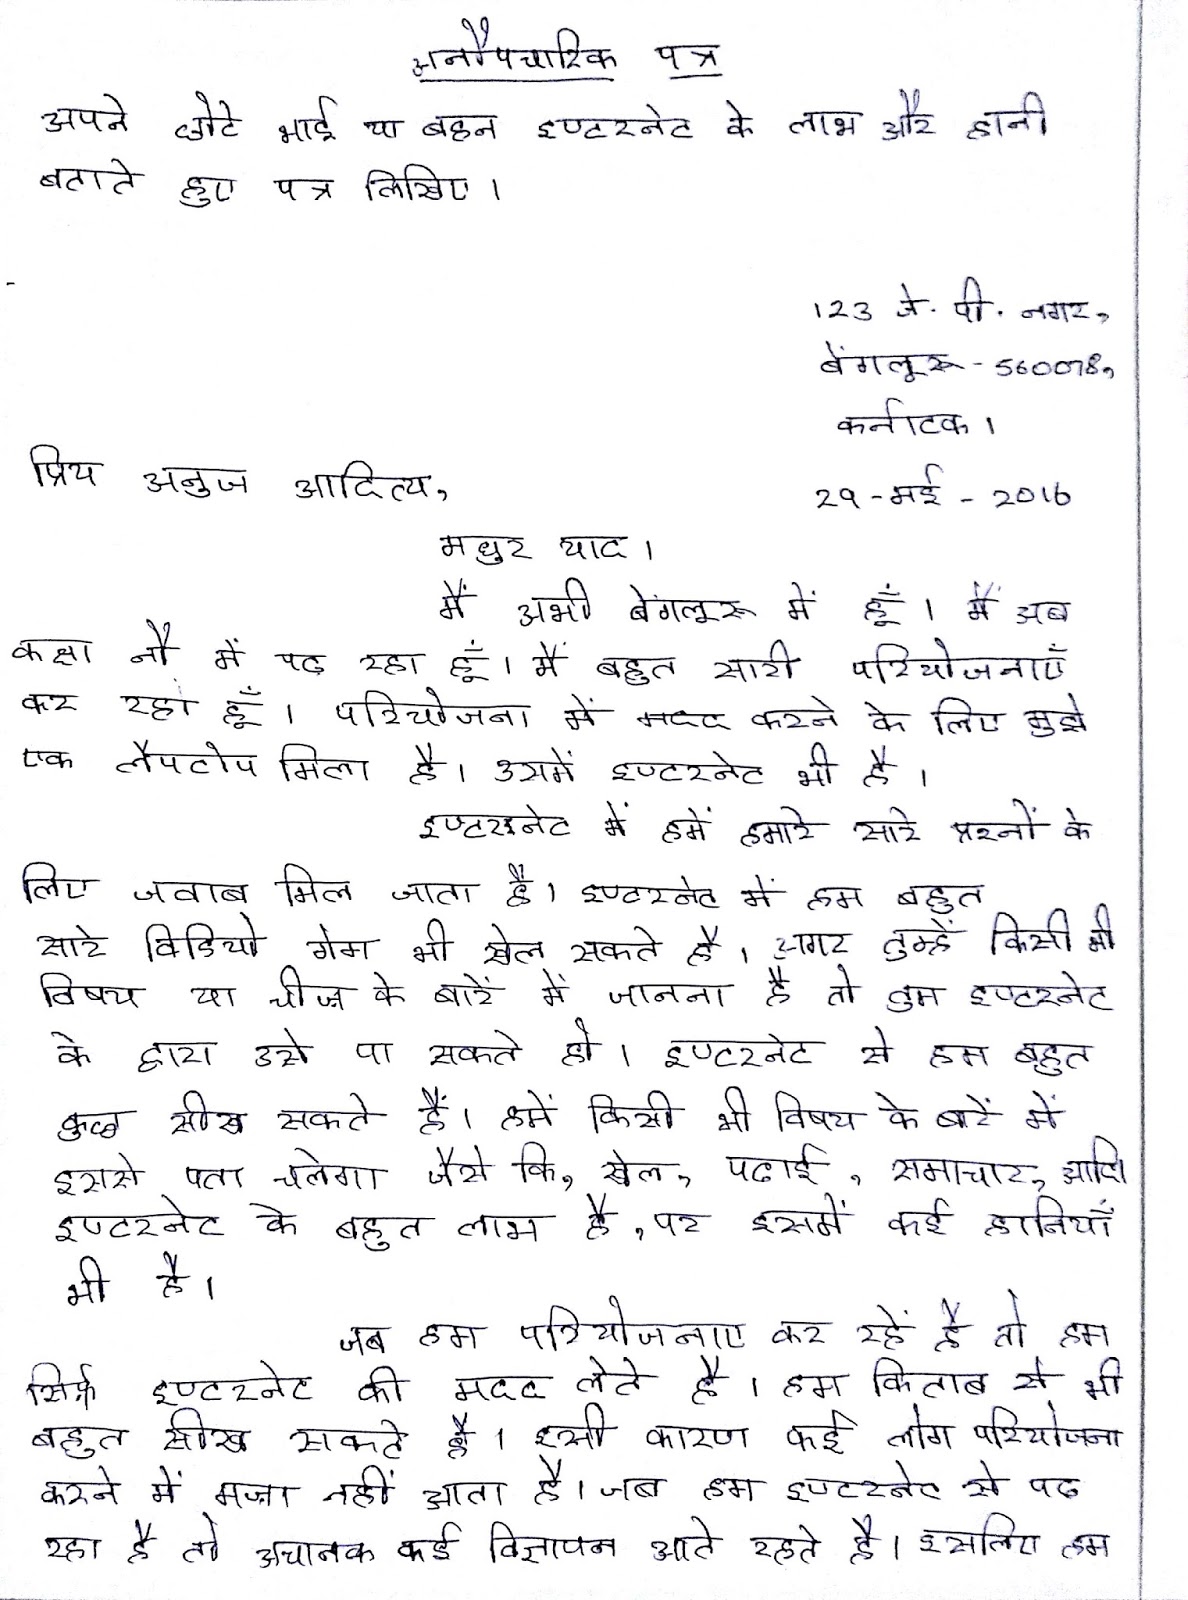 अनौपचारिक पत्र
अपने छोटे भाई या बहन इण्टरनेट के लाभ और हानी
बताते हुए पत्र लिखिए।
123 जे. पी. नगर,
बेंगलूरू - 560078,
कर्नाटक।
प्रिय अनुज आदित्य,
29 - मई - 2016
मधुर याद।
मैं अभी बेंगलूरू में हूँ। मैं अब
कक्षा नौ में पढ़ रहा हूँ। मैं बहुत सारी परियोजनाएँ
कर रहा हूँ। परियोजना में मदद करने के लिए मुझे
एक लैपटोप मिला है। उसमें इण्टरनेट भी है।
इण्टरनेट में हमें हमारे सारे प्रश्नों के
लिए जवाब मिल जाता है। इण्टरनेट में हम बहुत
सारे विडियो गेम भी खेल सकते है। अगर तुम्हें किसी भी
विषय या चीज के बारें में जानना है तो तुम इण्टरनेट
के द्वारा उसे पा सकते हो। इण्टरनेट से हम बहुत
कुछ सीख सकते हैं। हमें किसी भी विषय के बारें में
इससे पता चलेगा जैसे कि, खेल, पढाई, समाचार, आदि
इण्टरनेट के बहुत लाभ है, पर इसमें कई हानियाँ
भी है।
जब हम परियोजनाए कर रहें है तो हम
सिर्फ़ इण्टरनेट की मदद लेते है। हम किताब से भी
बहुत सीख सकते है। इसी कारण कई लोग परियोजना
करने में मज़ा नहीं आता है। जब हम इण्टरनेट से पढ
रहा है तो अचानक कई विज्ञापन आते रहते है। इसलिए हम